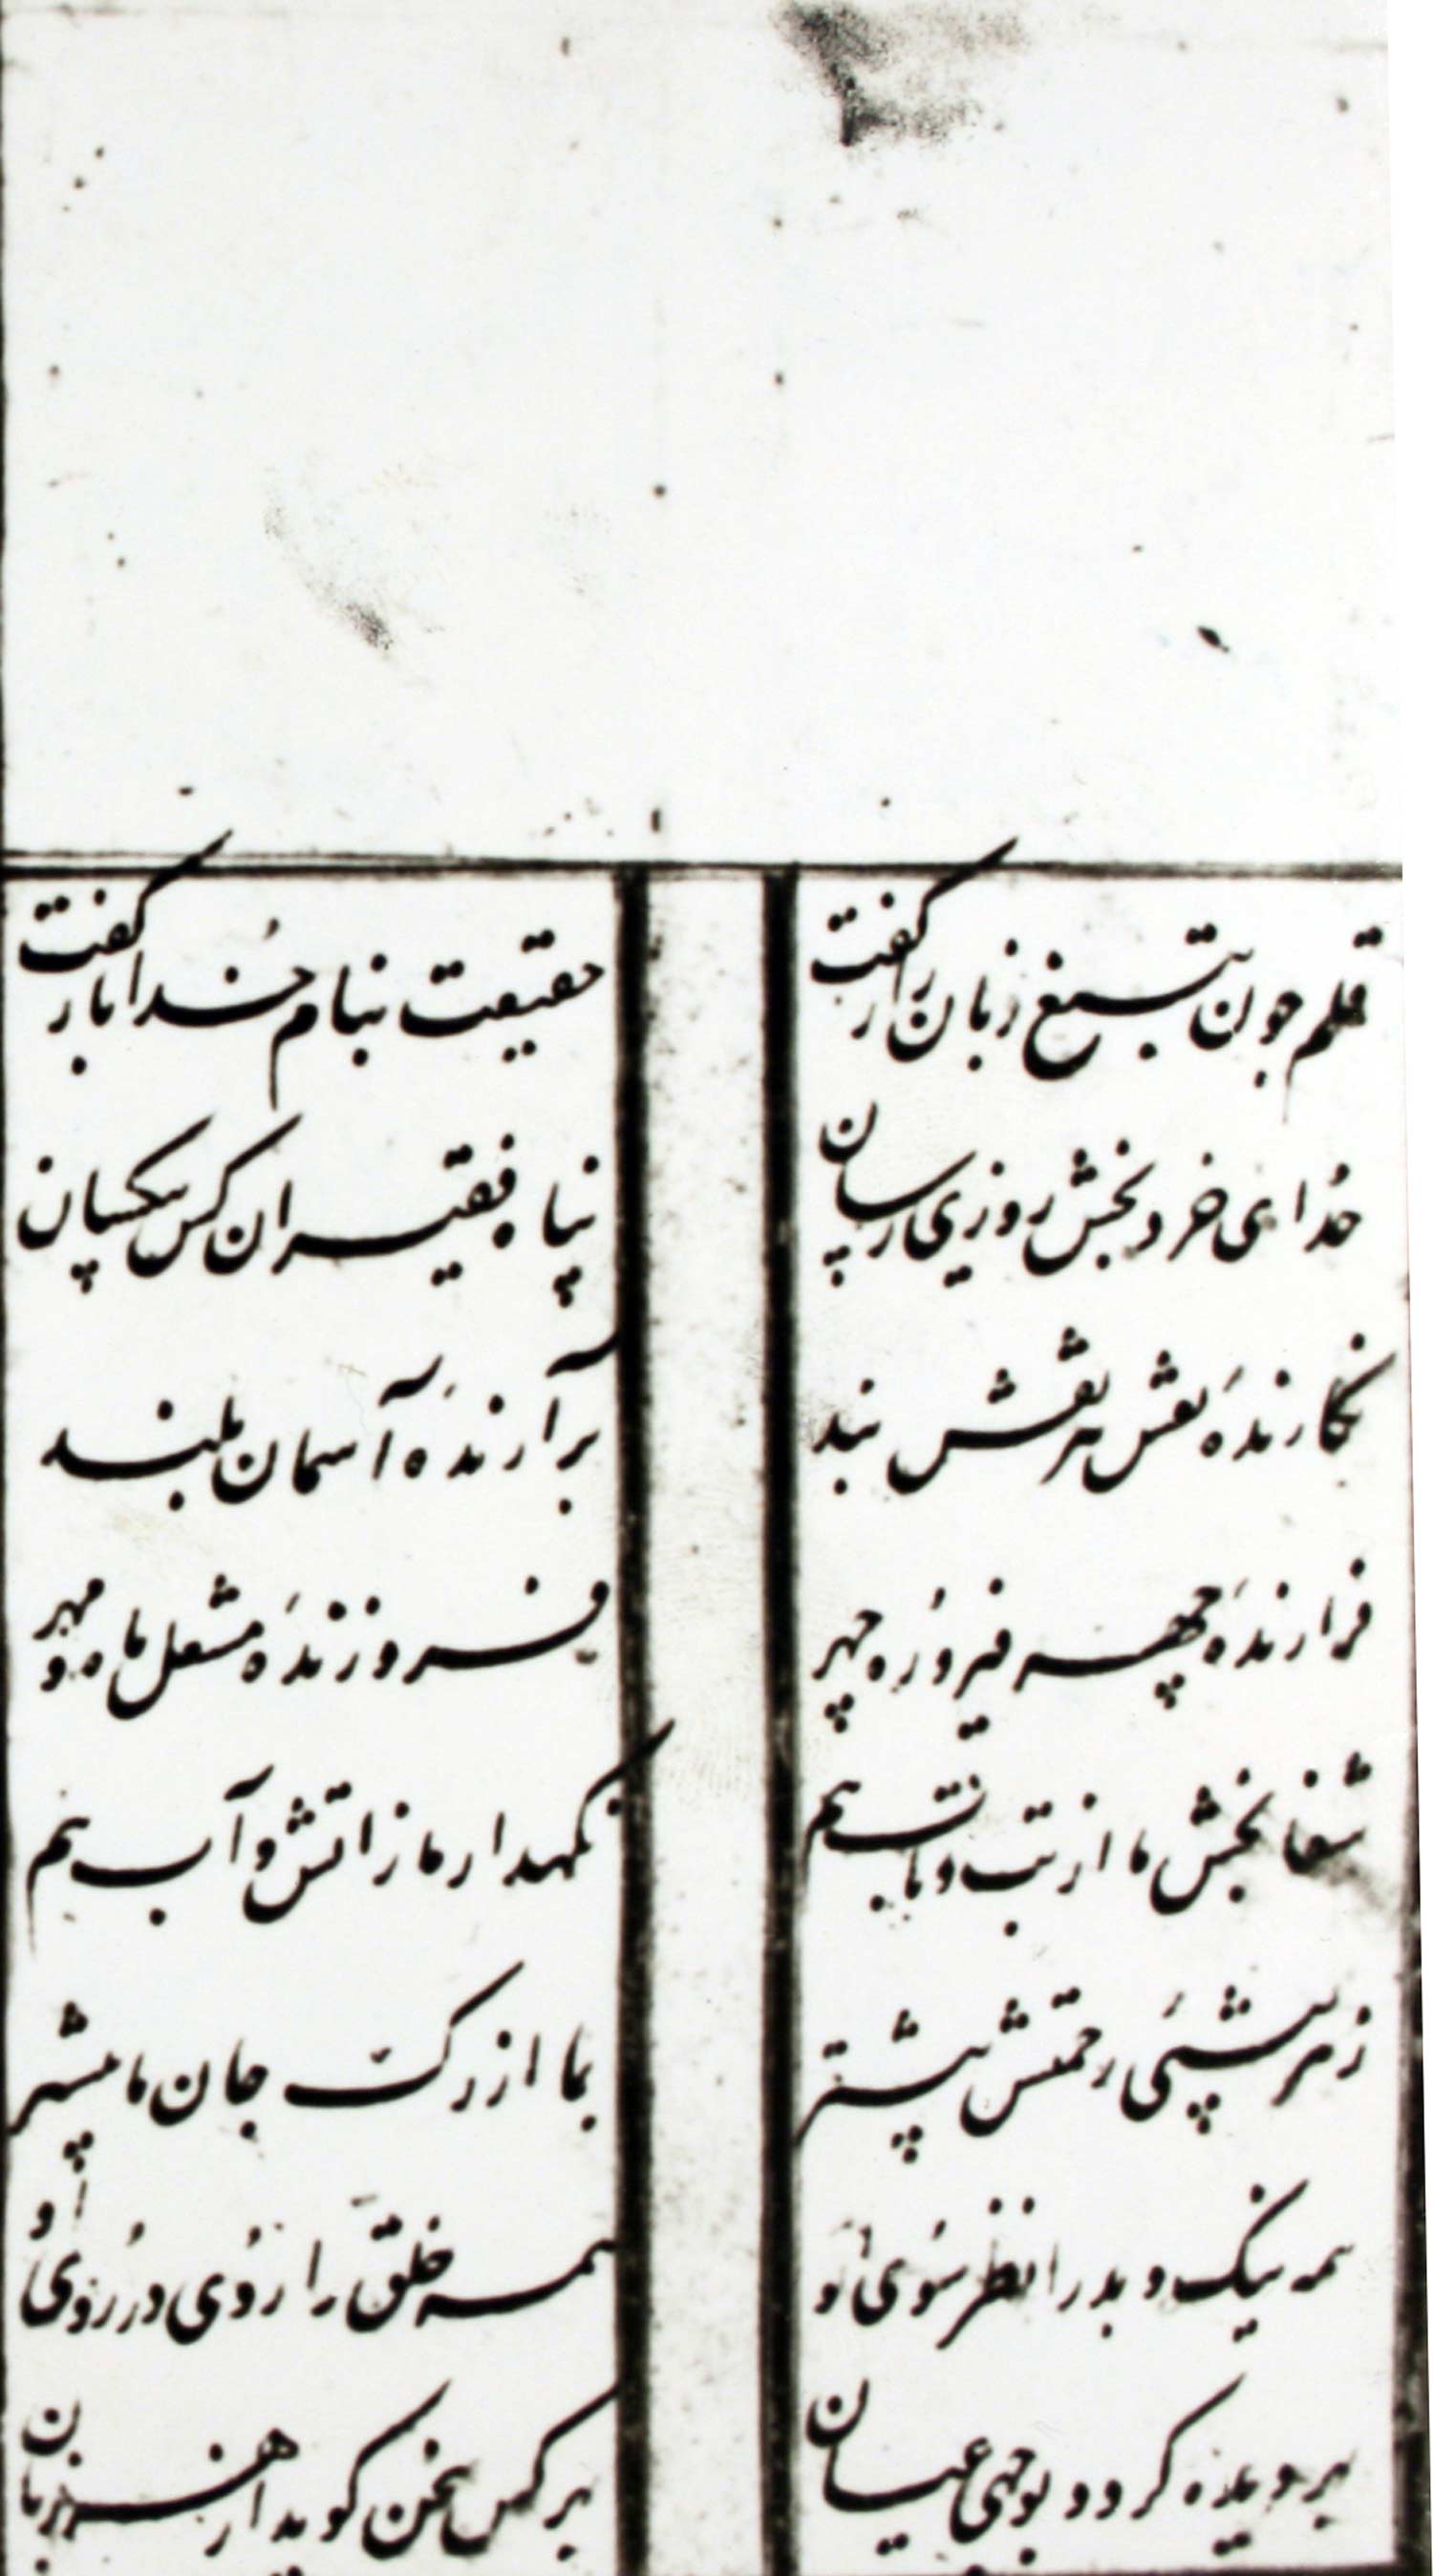 قلم چون بتیغ زبان راز گفت
حقیقت بنام خدا باز گفت
خدای خرد بخش روزی رسان
پناه فقیران کس بیکسان
نگارندهٔ نقش هر نقش بند
برآرندهٔ آسمان بلند
فرازندهٔ چهر فیروزه چهر
فروزندهٔ مشعل ماه و مهر
شفا بخش ما از تب و تاب هم
نگهدار ما ز اتش و آب هم
ز هر پیشیٔ رحمتش پیشتر
بما از رک جان ما پیشتر
همه نیک و بد را نظر سوی او
همه خلق را روی در روی او
بهر دیده کردد بوجهی عیان
بهر کس سخن کوید از هر زبان